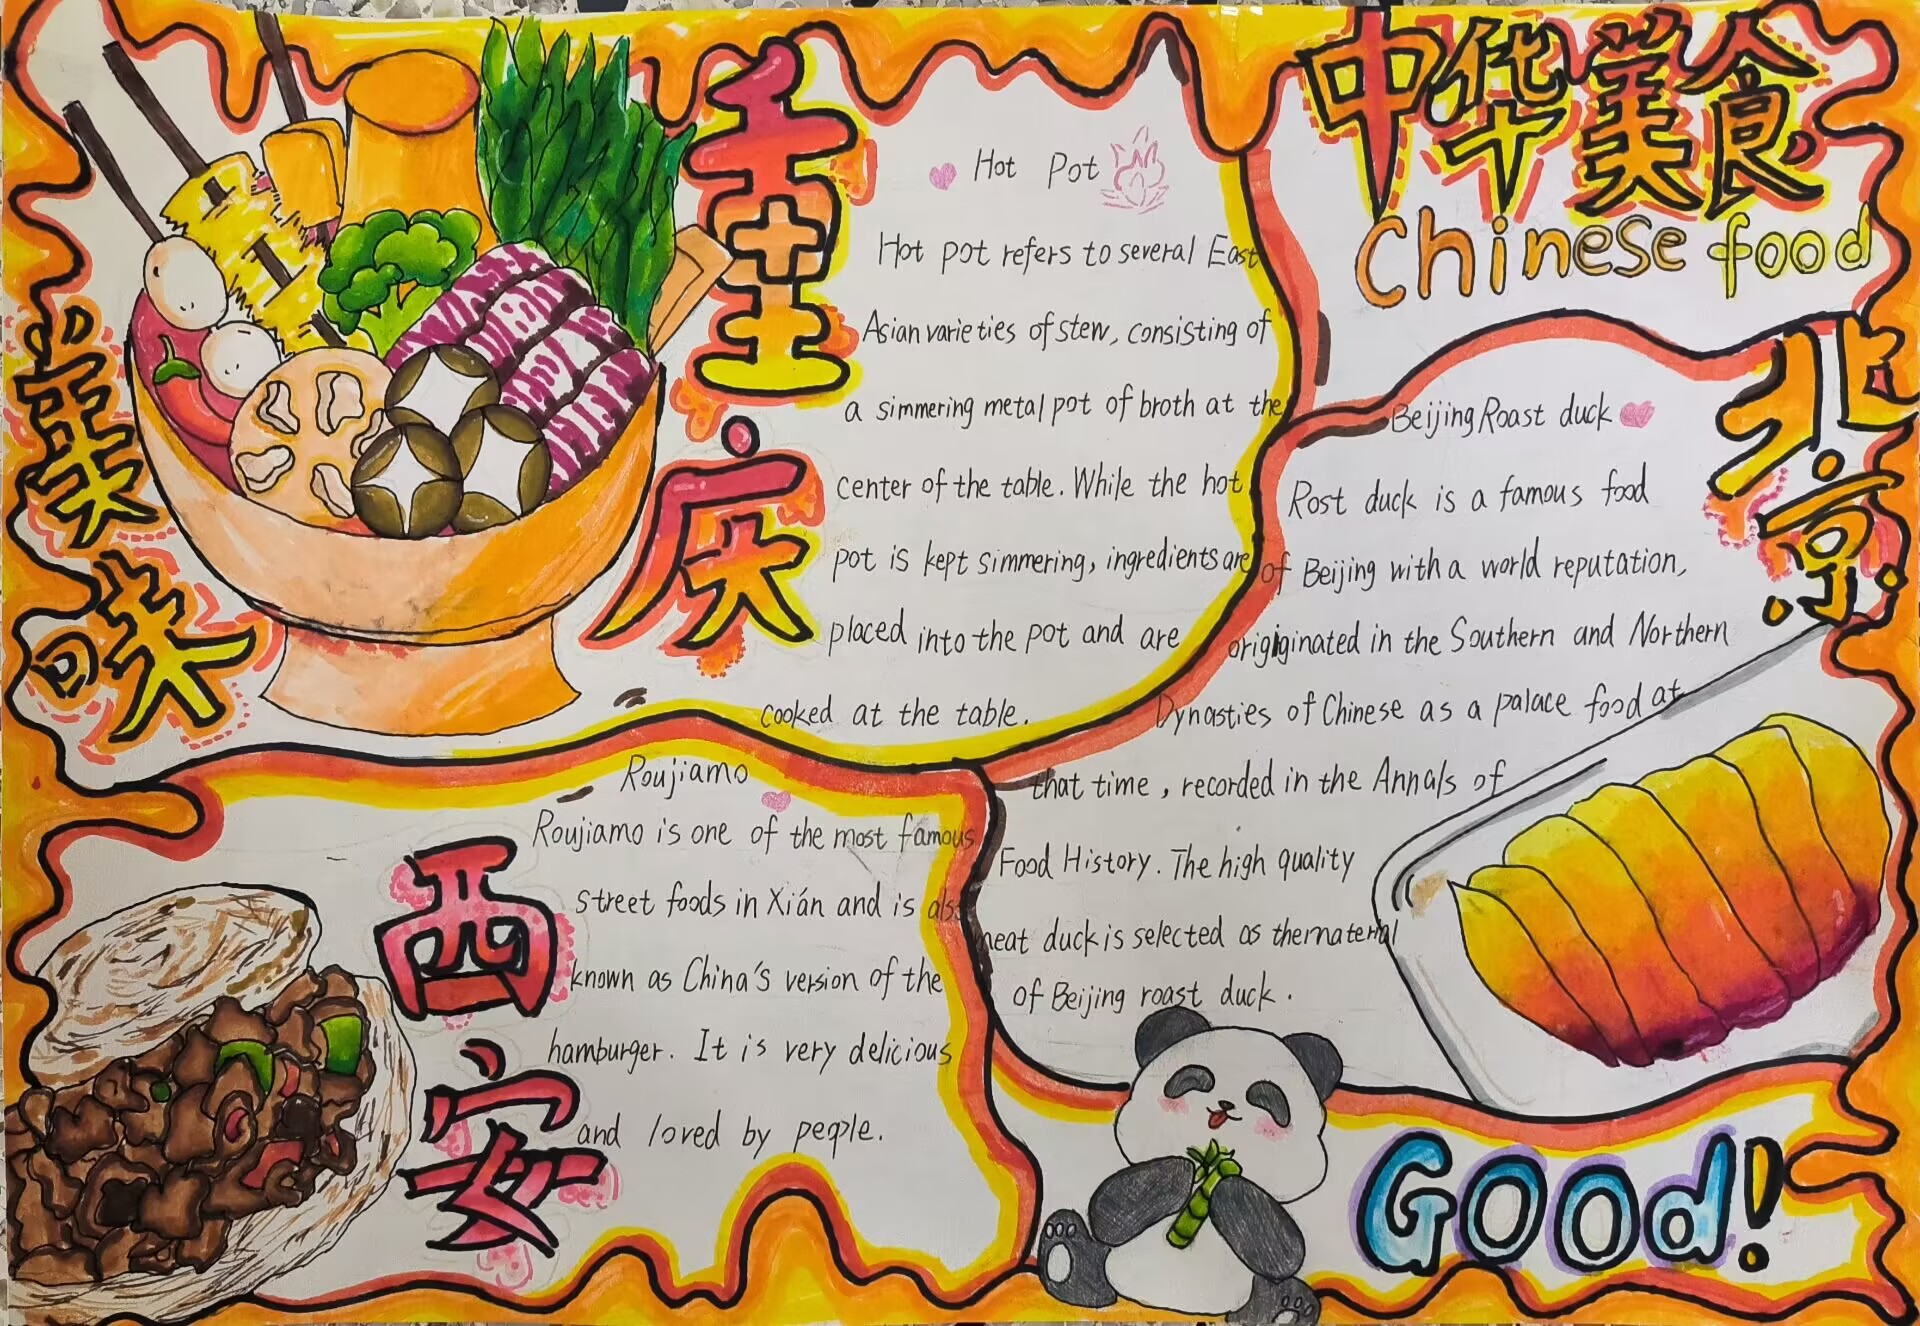 中华美食
Chinese food
美味
重庆
Hot Pot
Hot pot refers to several East
Asian varieties of stew, consisting of
a simmering metal pot of broth at the
center of the table. While the hot
pot is kept simmering, ingredients are
placed into the pot and are
cooked at the table.
北京
Beijing Roast duck
Rost duck is a famous food
of Beijing with a world reputation,
origiginated in the Southern and Northern
Dynasties of Chinese as a palace food at
that time, recorded in the Annals of
Food History. The high quality
meat duck is selected as the material
of Beijing roast duck.
西安
Roujiamo
Roujiamo is one of the most famous
street foods in Xián and is also
known as China's version of the
hamburger. It is very delicious
and loved by people.
Good!